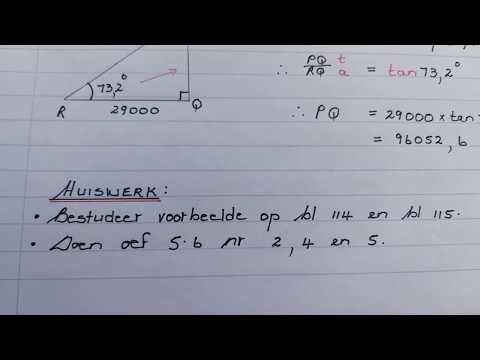 73,2°
R 29000 Q
∴ PQ/RQ t/a = tan 73,2°
∴ PQ = 29000 × tan
= 96052, 6
HUISWERK:
• Bestudeer voorbeelde op bl 114 en bl 115.
• Doen oef 5.6 nr 2, 4 en 5.